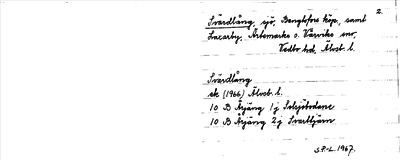 2.
Svärdlång, sjö, Bengtsfors köp., samt
Lacarby, Ärtemarks o. Värviks snr,
Vedbo hd, Älvsb. l.
Svärdlång
ek (1966) Älvsb. l.
10 B Årjäng 1j
10 B Årjäng 2j Svarttjärn
S.P-L. 1967.